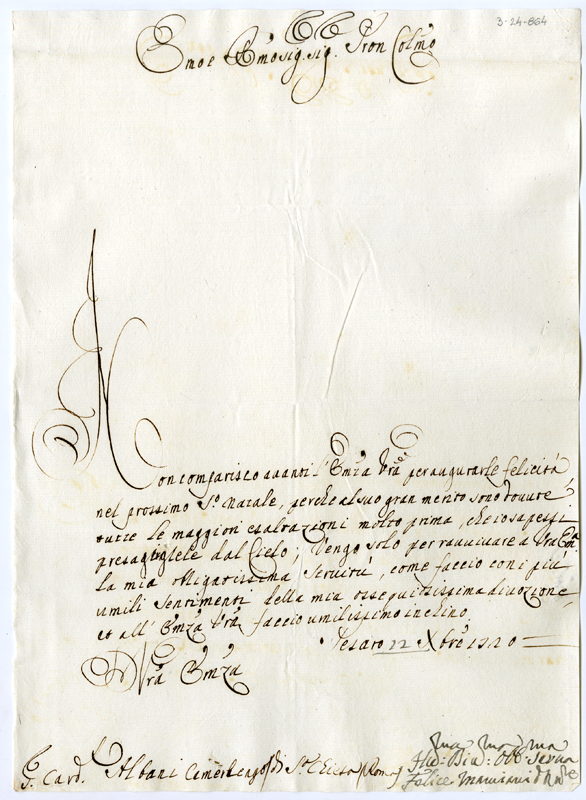 3-24-864
Emo e Rmo Sig. Sig. Pron Colmo
Non comparisco avanti l'Emza Vra per augurarle felicità
nel prossimo Sto Natale, perche al suo gran merito sono dovute
tutte le maggiori esaltazioni molto prima, che io sapessi
presagirgliele dal Cielo; Vengo solo per ravvivare a Vra Emza
la mia obligatissima servitù, come faccio con i più
umili sentimenti della mia ossequissima divozione,
et all'Emza Vra faccio umilissimo inchino
Pesaro 22 Xbre 1720
D Vra Emza
S. Card. Albani Camerlengo di Sta Chiesa (Roma)
Hu: Diu: Obb Serua
Felice